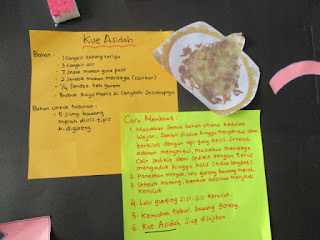 Kue Asidah
Bahan : - 1 cangkir tepung terigu
- 3 cangkir air
- 7 sendok makan gula pasir
- 2 sendok makan mentega (cairkan)
- 1/4 sendok teh garam
- Bubuk Kayu Manis & Cengkeh secukupnya
Bahan untuk taburan :
- 5 siung bawang
merah diiris tipis
& digoreng.
Cara Membuat :
1. Masukkan semua bahan utama kedalam
wajan, sambil diaduk hingga mengental dan
bercuat dengan api yang kecil. Setelah
adonan mengental, masukkan mentega
cair sedikit demi sedikit dengan terus
mengaduk hingga kalis (tidak lengket).
2. Panaskan minyak, lalu goreng bawang merah.
3. Setelah matang, bentuk adonan menjadi
kerucut
4. Lalu gunting sisi-sisi kerucut.
5. Kemudian taburi bawang goreng.
6. Kue Asidah siap disajikan.